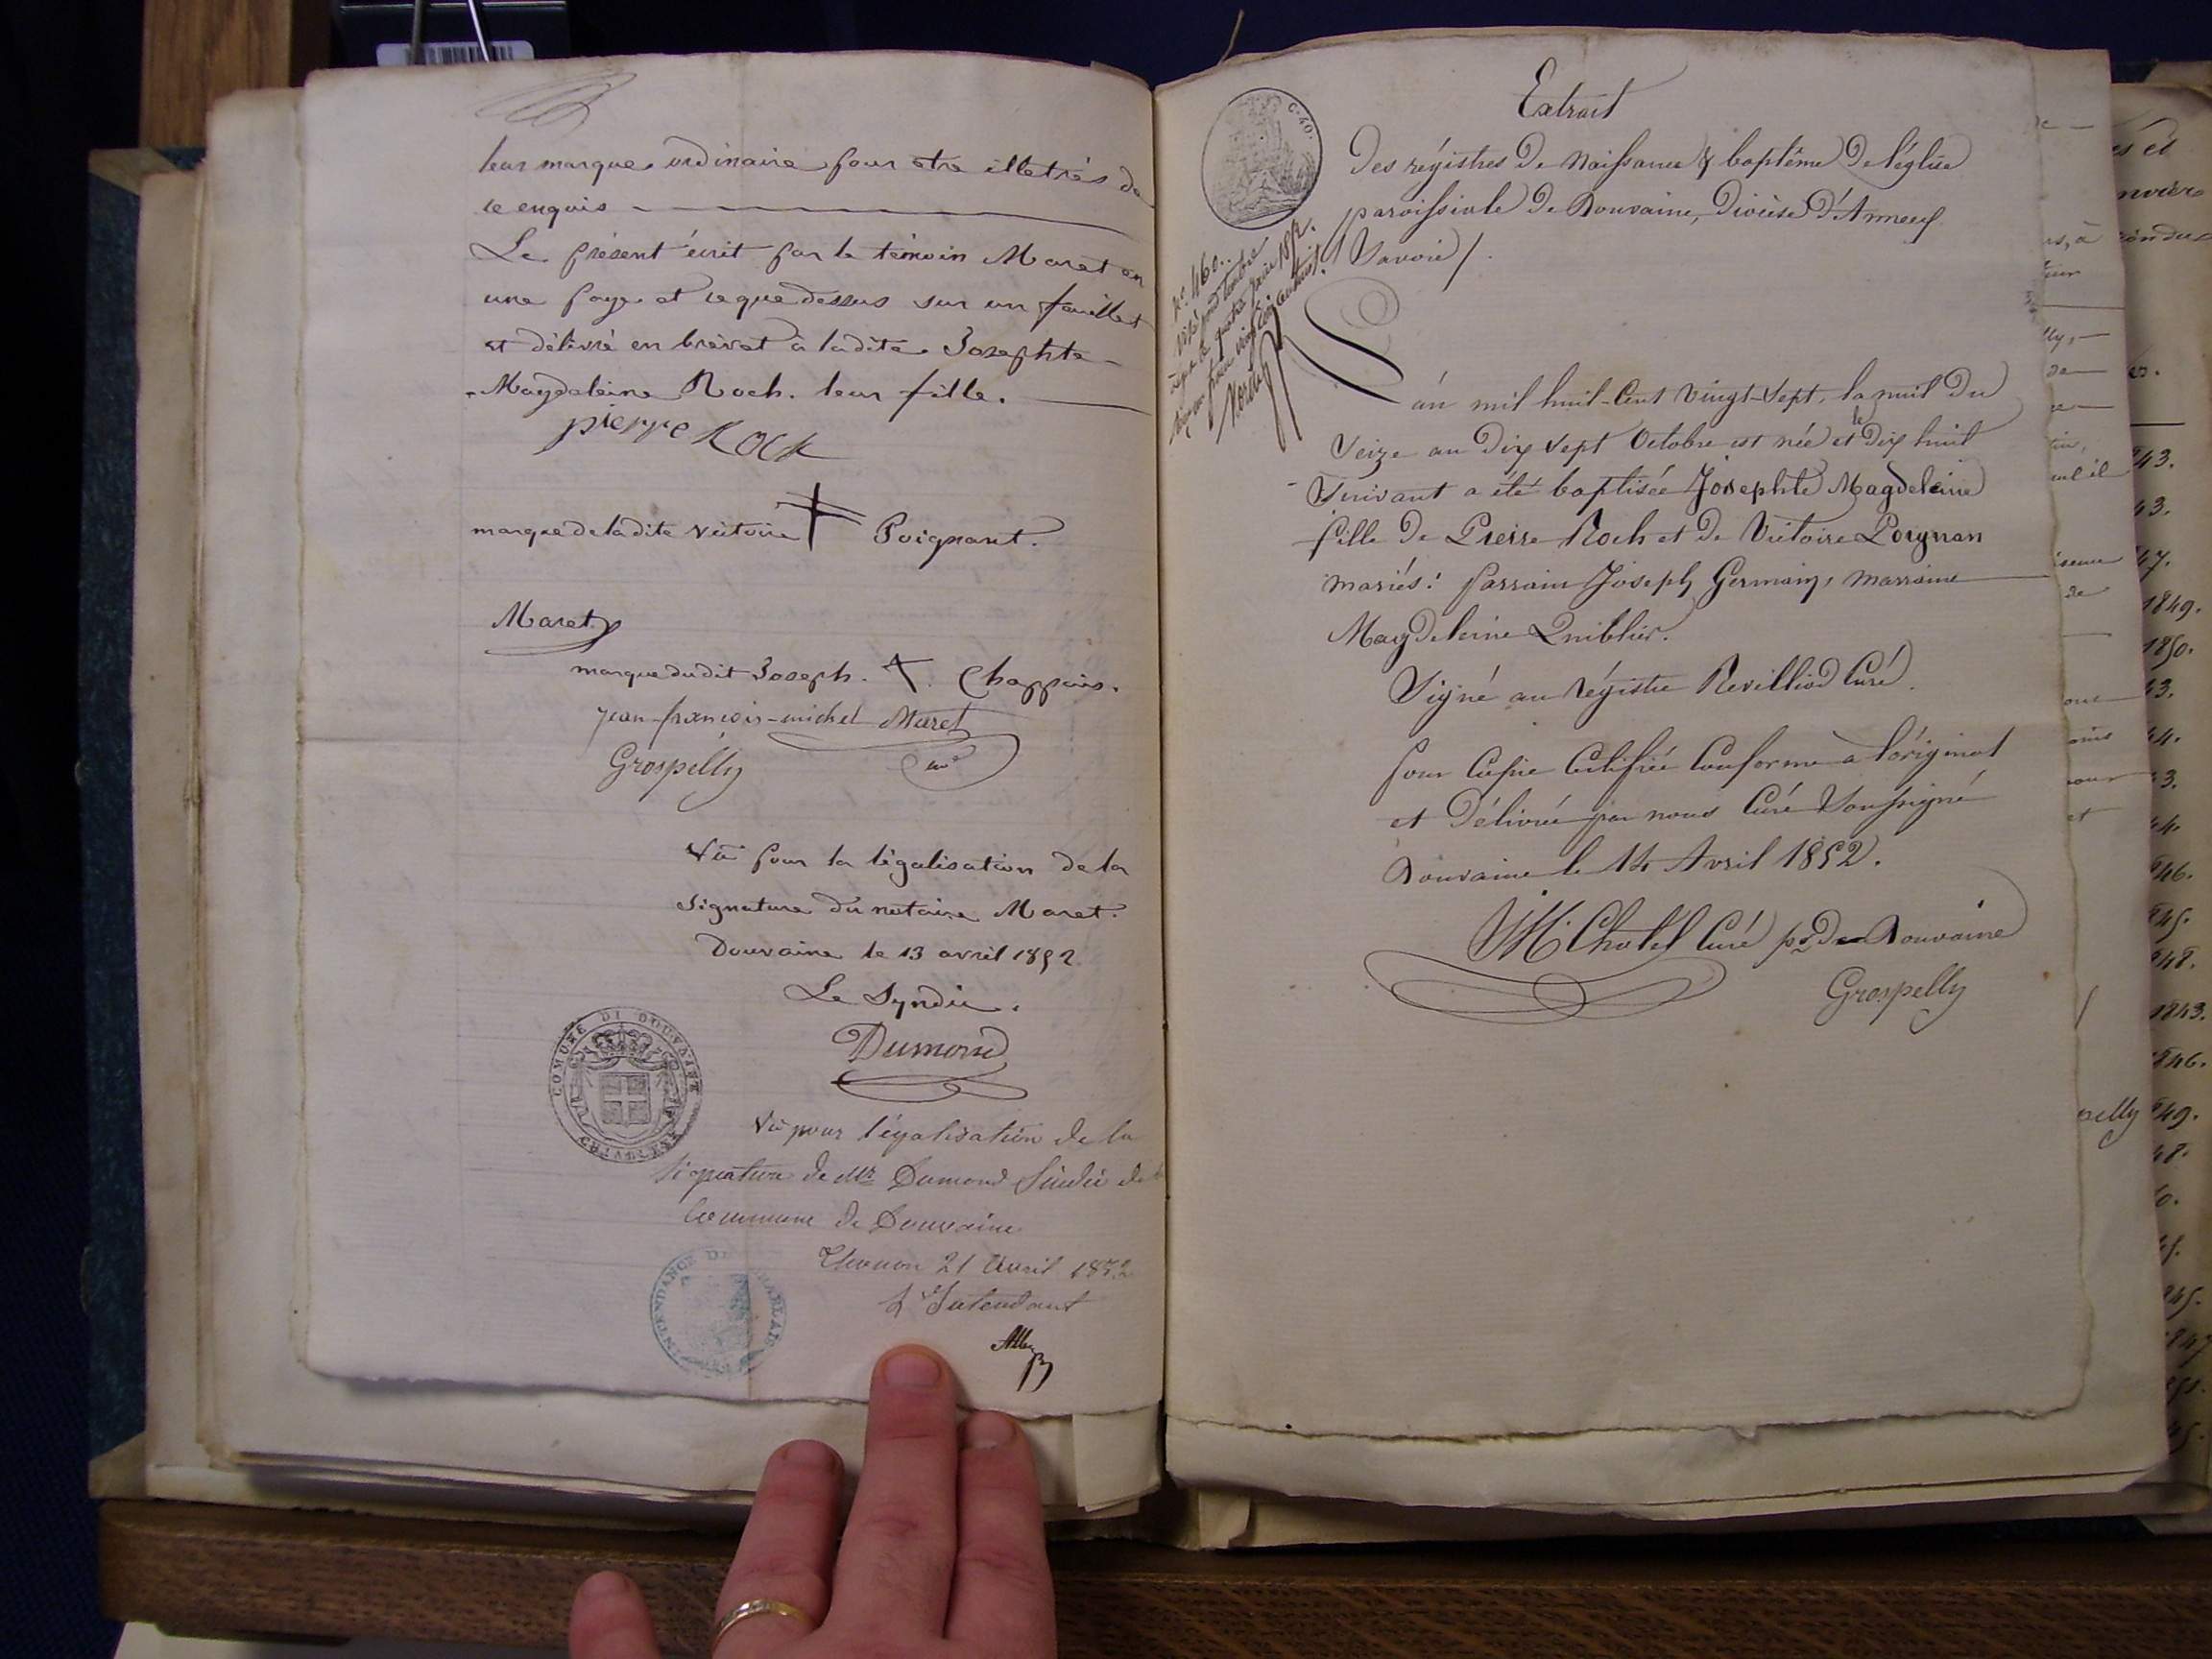 leur marque ordinaire pour etre illetrés de
ce enquis
Le présent écrit par le témoin Maret en
une page et ce que dessus sur un feuillet
et délivré en brévet à ladite Josephte
Magdeleine Roch. leur fille.
pierre Roch
marque de ladite victoire Poignant.
Maret
marque dudit Joseph. Chappuis.
jean-françois-michel Maret
Grospelly
Vu pour la légalisation de la
signature du notaire Maret.
Douvaine le 13 avril 1852.
Le Syndic.
Dumond
COMUNE DI DOUVAINE
CHIABLESE
Vu pour légalisation de la
Signature de Mr Dumond Sindic de la
Commune de Douvaine
Thonon 21 Avril 1852
L'Intendant
INTENDANCE DU CHABLAIS
Extrait
C. 40.
Des régistres De Naissance & baptême De l'église
paroissiale De Douvaine, Diocèse D'Annecy
(Savoie).
No. 460.
Visé pour timbre
L'án mil huit-Cent Vingt-Sept, la nuit Du
Seize au Dix Sept Octobre est née et le Dix huit
Suivant a été baptisée Josephte Magdeleine
fille De Pierre Roch et De Victoire Poignan
mariés: parrain Joseph Germain, marraine
Magdeleine Quiblier.
Signé au régistre Revilliod Curé.
Pour Copie Certifiée Conforme a l'original
et Délivrée par nous Curé Soussigné
Douvaine le 14 Avril 1852.
Chatel Curé pr. De Douvaine
Grospelly
1849.
1850.
1843.
1846.